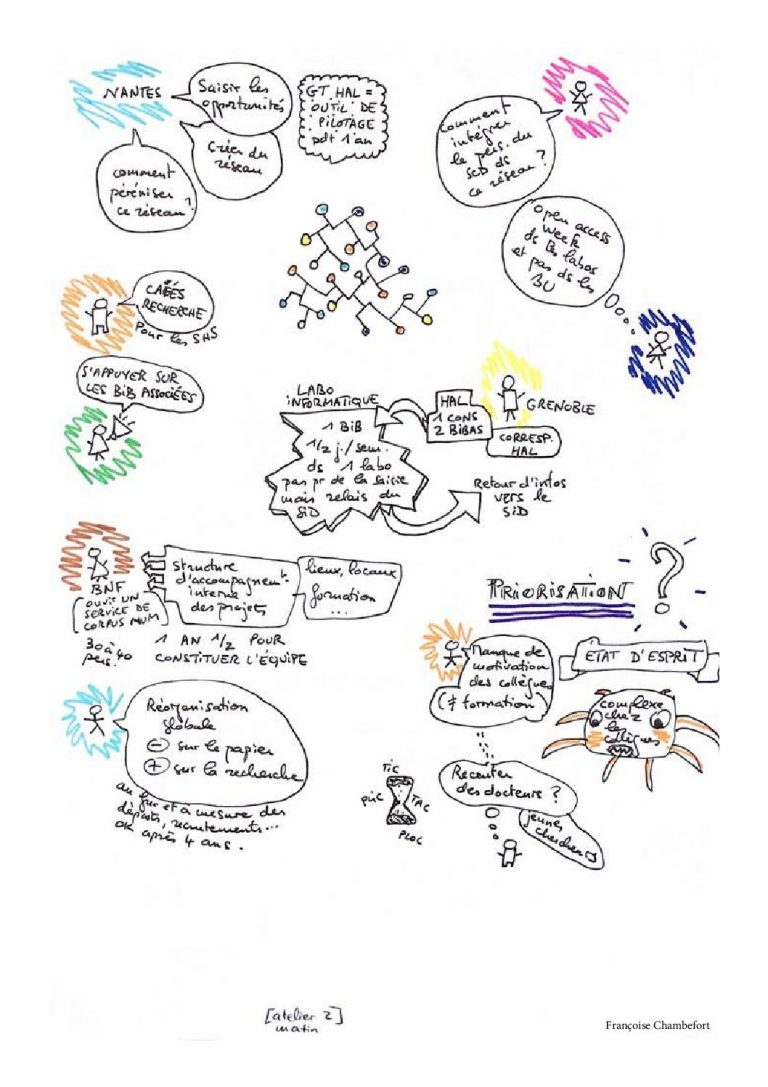 NANTES
Saisir les
opportunités
GT HAL =
OUTIL DE
PILOTAGE
pdt 1 an
Créer du
réseau
comment
péréniser
ce réseau?
comment
intégrer
le pers. du
SCD ds
ce réseau ?
open access
week
ds les labos
et pas ds les
BU
CAFÉS
RECHERCHE
Pour les SHS
S'APPUYER SUR
LES BIB ASSOCIÉES
LABO
INFORMATIQUE
1 BIB
1/2 j./sem.
ds 1 labo
pas pr de la saisie
mais relais du
SiD
HAL
1 CONS
2 BIBAS
GRENOBLE
CORRESP.
HAL
Retour d'infos
vers le
SiD
BNF
OUVRE UN
SERVICE DE
CORPUS NUM
30 à 40
pers.
Structure
d'accompagnent.
interne
des projets
lieux, locaux
formation
...
1 AN 1/2 POUR
CONSTITUER L'ÉQUIPE
PRIORISATION
?
Manque de
motivation
des collègues
(≠ formation)
ETAT D'ESPRIT
complexe
chez
les
collègues
Réorganisation
globale
- sur le papier
+ sur la recherche
au fur et à mesure des
départs, recrutements...
OK après 4 ans.
TIC
PLIC
TAC
PLOC
Recruter
des docteurs ?
jeunes
chercheurs
[atelier 2]
matin
Françoise Chambefort